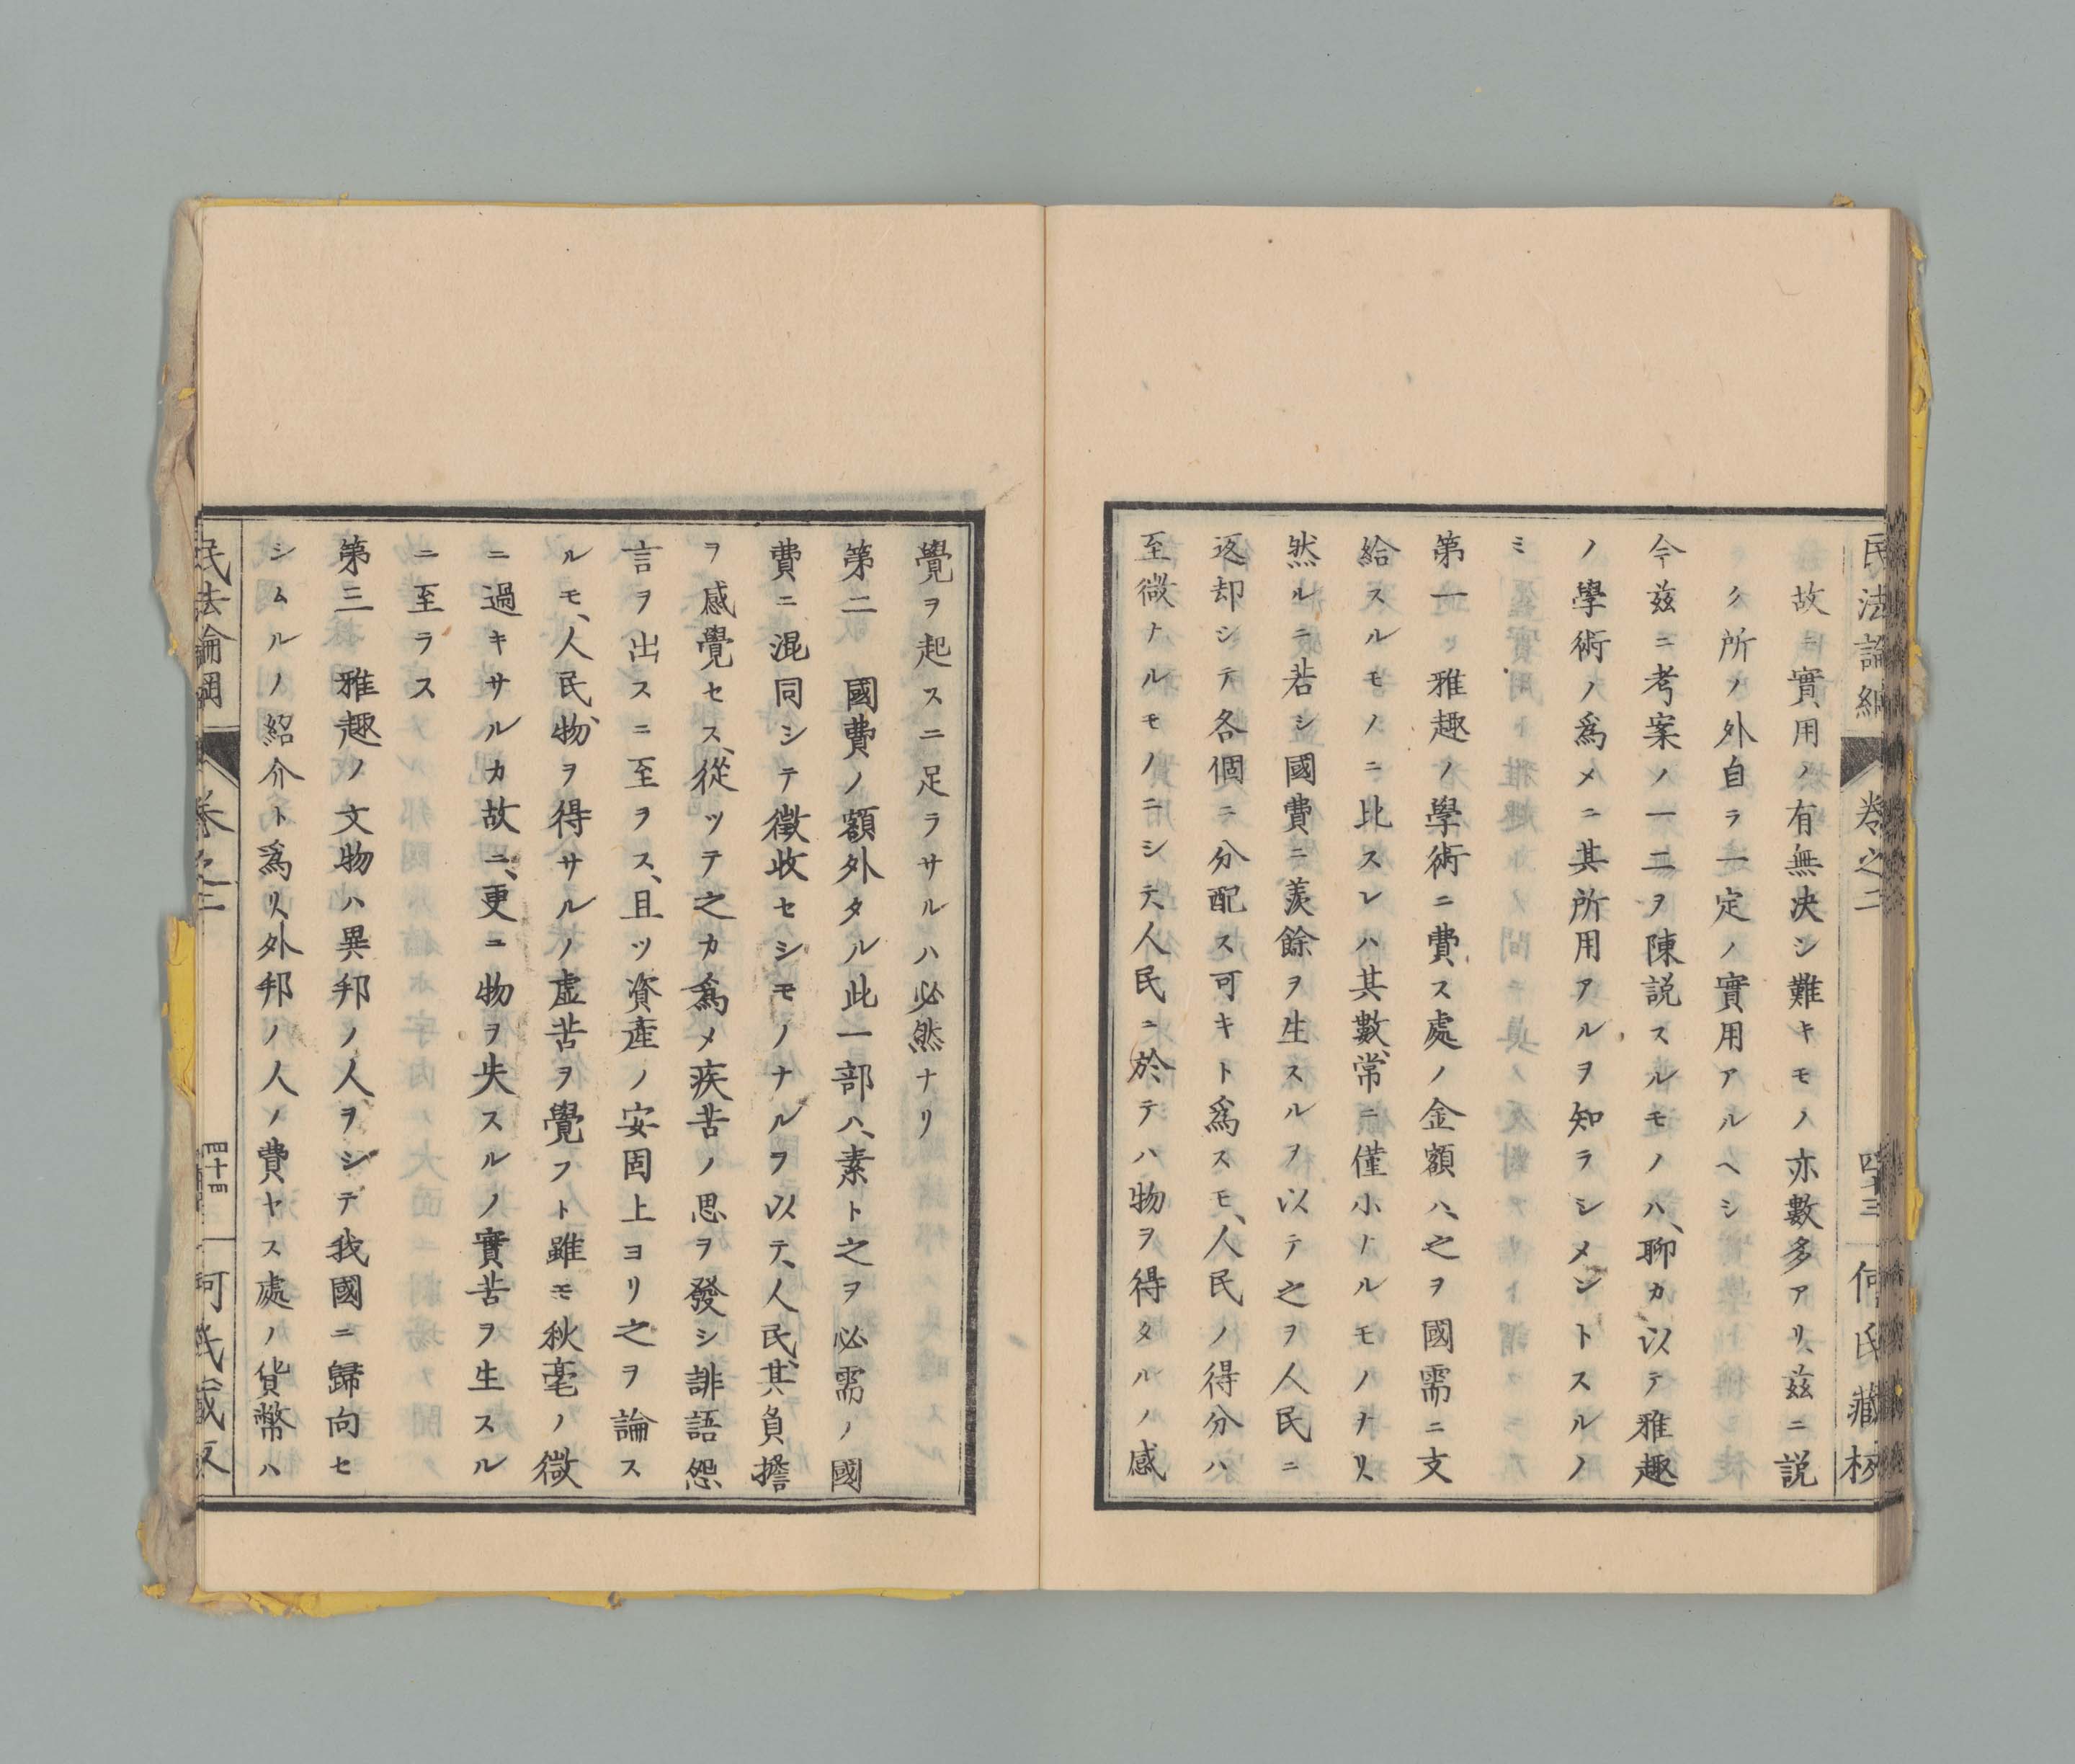 民法論綱 卷之二 四十三 何氏藏板
故ニ實用ノ有無決シ難キモノ亦數多アリ、茲ニ説
ク所ノ外自ラ一定ノ實用アルヘシ
今茲ニ考案ノ一二ヲ陳説スルモノハ、聊カ以テ雅趣
ノ學術ノ爲メニ其所用アルヲ知ラシメントスルノ
ミ
第一 雅趣ノ學術ニ費ス處ノ金額ハ、之ヲ國需ニ支
給スルモノニ比スレハ其數常ニ僅小ナルモノナリ、
然ルニ若シ國費ニ羨餘ヲ生スルヲ以テ之ヲ人民ニ
返却シテ各個ニ分配ス可キト爲スモ、人民ノ得分ハ
至微ナルモノニシテ、人民ニ於テハ物ヲ得タルノ感
覺ヲ起スニ足ラサルハ必然ナリ
第二 國費ノ額外タル此一部ハ、素ト之ヲ必需ノ國
費ニ混同シテ徵收セシモノナルヲ以テ、人民其負擔
ヲ感覺セス、從ツテ之カ爲メ疾苦ノ思ヲ發シ誹語怨
言ヲ出スニ至ラス、且ツ資產ノ安固上ヨリ之ヲ論ス
ルモ、人民物ヲ得サルノ虛苦ヲ覺フト雖モ秋毫ノ微
ニ過キサルカ故ニ、更ニ物ヲ失スルノ實苦ヲ生スル
ニ至ラス
第三 雅趣ノ文物ハ異邦ノ人ヲシテ我國ニ歸向セ
シムルノ紹介ト爲リ、外邦ノ人ノ費ヤス處ノ貨幣ハ
民法論綱 卷之二 四十四 何氏藏板